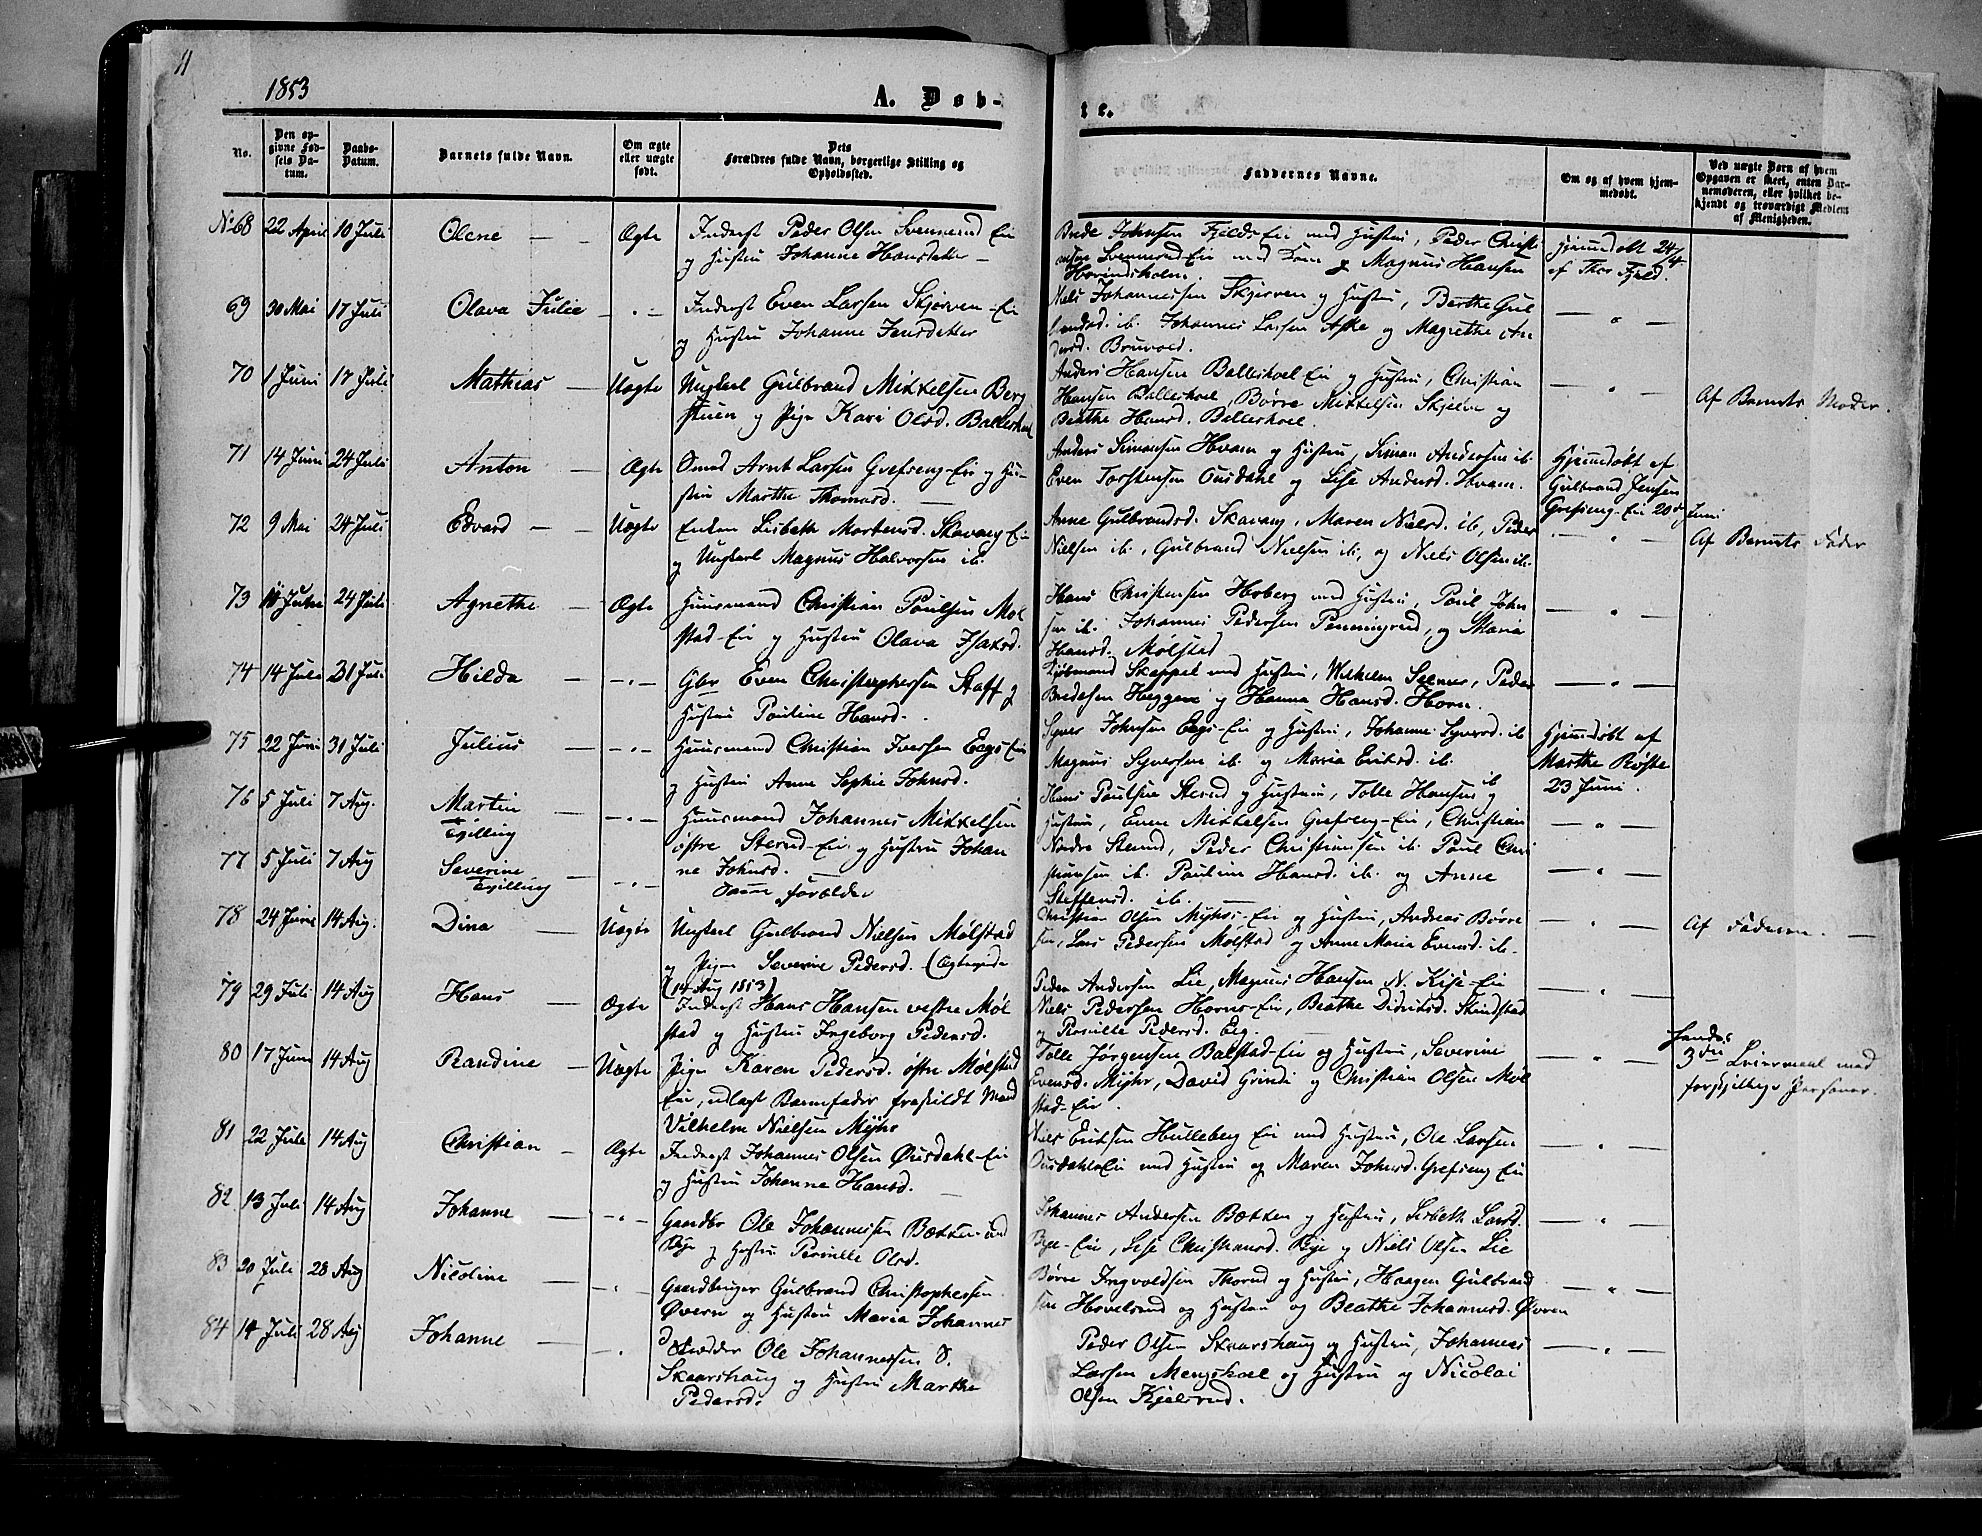 11
1853
A. Døb-
te.
No.
Den opgivne Fødsels Datum.
Daabs-Datum.
Barnets fulde Navn.
Om ægte eller uægte født.
Dets Forældres fulde Navn, borgerlige Stilling og Opholdssted.
Faddernes Navne.
Om og af hvem hjemmedøbt.
Ved uægte Børn af hvem Opgaven er skeet, enten Barnemoderen, eller hvilket bekjendt og troværdigt Medlem af Menigheden.
No 68 22 April 10 Juli Olene — Ægte Inderst Peder Olsen Svennerud Eie
og Hustru Johanne Hansdatter —
Brede Johnsen Fjelds-Eie med Hustru, Peder Christi
ansen Svennerud-Eie med Kone og Magnus Hansen
Hovindsholm.
Hjemmedøbt 24/4
af Thor Fjeld.
69 30 Mai 17 Juli Olava Julie — " — Inderst Even Larsen Skjerven-Eie
og Hustru Johanne Jensdatter
Niels Johannessen Skjerven og Hustru, Berthe Gul
brandsd. ib. Johannes Larsen Aske og Magrethe An
dersd. Bruvold.
— " —
70 1 Juni 17 Juli Mathias — Uægte Ungkarl Gulbrand Mikkelsen Berg
stuen og Pige Kari Olsd. Balleshoel
Anders Hansen Balleshoel Eie og Hustru, Christian
Hansen Balleshoel, Børre Mikkelsen Skjelve og
Berthe Hansd. Balleshoel.
— " —
Af Barnets Moder.
71 14 Juni 24 Juli Anton — Ægte Smed Arnt Larsen Grefseng-Eie og Hu-
stru Marthe Thomasd. —
Anders Simensen Hvam og Hustru, Simen Andersen ib.
Even Torstensen Ousdahl og Lise Andersd. Hvam.
Hjemmedøbt af
Gulbrand Jensen
Grefseng-Eie 20de Juni
72 9 Mai 24 Juli Edvard — Uægte Enken Lisbeth Mortensd. Skavang-Eie
og Ungkarl Magnus Halvorsen ib.
Anne Gulbrandsd. Skavang, Maren Nielsd. ib, Peder
Nielsen ib., Gulbrand Nielsen ib. og Niels Olsen ib.
— " —
Af Barnets Fader
73 18 Juni 24 Juli Agnethe — Ægte Huusmand Christian Poulsen Møl
stad-Eie og Hustru Olava Isaksd.
Hans Christensen Hoberg med Hustru, Poul John
sen ib. Johannes Pedersen Penningrud, og Maria
Hansd. Mølstad
— " —
74 14 Juli 31 Juli Hilda — " — Gbr Even Christophersen Staff og
Hustru Pauline Hansd.
Kjøbmand Skappel med Hustru, Wilhelm Selmer, Peder
Bredesen Heggen og Hanna Hansd. Horn.
— " —
75 22 Juni 31 Juli Julius — " — Huusmand Christian Iversen Eegs-Eie
og Hustru Anne Sophie Johnsd.
Syver Johnsen Eegs-Eie og Hustru, Johanne Syversd. ib
Magnus Syversen ib. og Maria Eriksd. ib.
Hjemmedøbt af
Marthe Røste
23 Juni.
76 5 Juli 7 Aug. Martin
Tvilling — " — Huusmand Johannes Mikkelsen
østre Sterud-Eie og Hustru Johan
ne Johnsd.
Hans Poulsen Sterud og Hustru, Tolle Hansen ib og
Hustru, Even Mikkelsen Grefseng-Eie, Christian
— " —
77 5 Juli 7 Aug Severine
Tvilling — " — Samme Forældre
Nordre Sterud, Peder Christiansen ib. Poul Chri
stiansen ib. Pauline Hansd. ib. og Anne
Steffensd. ib. —
— " —
78 24 Juni 14 Aug. Dina — Uægte Ungkarl Gulbrand Nielsen Mølstad
og Pige Severine Pedersd. (Ægteviede
14 Aug 1853)
Christian Olsen Myhrs-Eie og Hustru, Andreas Børre
sen, Lars Pedersen Mølstad og Anne Maria Evensd. ib.
— " —
Af Faderen. —
79 29 Juli 14 Aug Hans — Ægte Inderst Hans Hansen vestre Møl
stad og Hustru Ingeborg Pedersd.
Peder Andersen Lie, Magnus Hansen N. Kise-Eie
Niels Pedersen Horns-Eie, Berthe Didriksd. Steindstad
og Pernille Pedersd. Eeg. —
— " —
80 17 Juni 14 Aug Randine — Uægte Pige Karen Pedersd. østre Mølstad
Eie, udlagt Barnefader fraskildt Mand
Vilhelm Nielsen Myhr
Tolle Jørgensen Balstad-Eie og Hustru, Severine
Evensd. Myhr, David Grindi og Christian Olsen Møl
stad-Eie.
— " —
3die Leiermaal med
forskjellige Personer.
81 22 Juli 14 Aug Christian — Ægte Inderst Johannes Olsen Ousdahl-Eie
og Hustru Johanne Hansd. —
Niels Eriksen Hulleberg Eie med Hustru, Ole Larsen
Ousdahls Eie med Hustru og Maren Johnsd. Grefseng Eie
— " —
82 13 Juli 14 Aug Johanne — " — Gaardbr Ole Johannesen Bækken
Bye og Hustru Pernille Olsd.
Johannes Andersen Bækken og Hustru, Lisbeth Larsd.
Bye-Eie, Lise Christiansd. Bye og Niels Olsen Lie
— " —
83 20 Juli 28 Aug Nicoline — " Gaardbruger Gulbrand Christophersen
Øveren og Hustru Maria Johannes
d.
Børre Ingvoldsen Thorud og Hustru, Haagen Gulbrand
sen Hovelsrud og Hustru og Beathe Johannesd. Øvren
— " —
84 14 Juli 28 Aug Johanne — " Skrædder Ole Johannessen S.
Skaarshaug og Hustru Marthe
Pedersd.
Peder Olsen Skaarshaug og Hustru, Johannes
Larsen Mengshoel og Hustru og Nicolai
Olsen Kjelsrud.
— " —